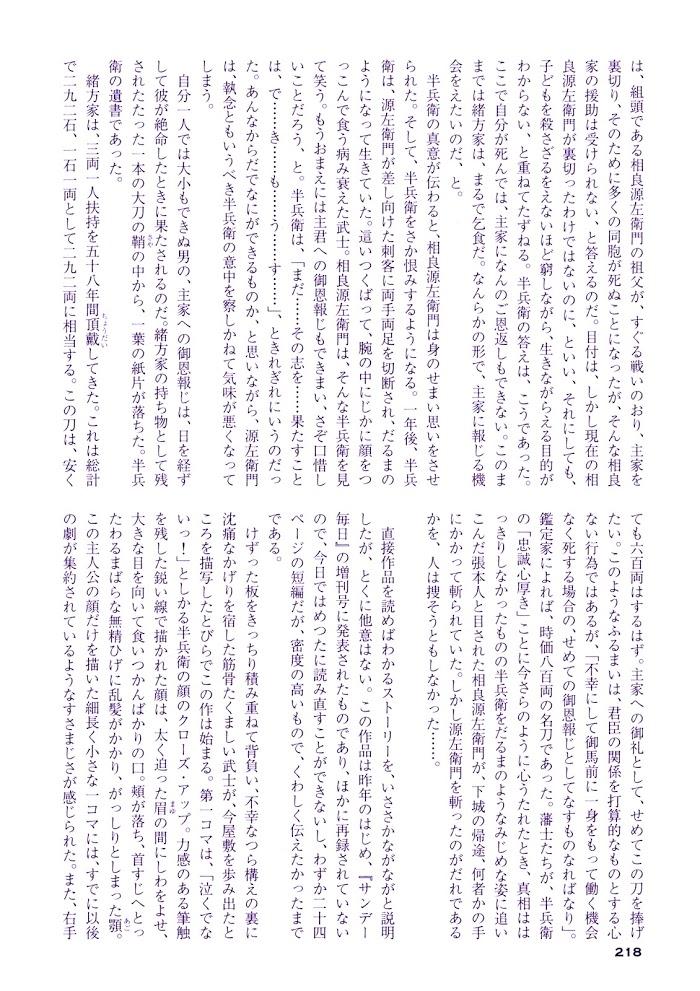 は、組頭である相良源左衛門の祖父が、すぐる戦いのおり、主家を
裏切り、そのために多くの同胞が死ぬことになったが、そんな相良
家の援助は受けられない、と答えるのだ。目付は、しかし現在の相
良源左衛門が裏切ったわけではないのに、といい、それにしても、
子どもを殺さざるをえないほど窮しながら、生きながらえる目的が
わからない、と重ねてたずねる。半兵衛の答えは、こうであった。
ここで自分が死んでは、主家になんのご恩返しもできない。このま
までは緒方家は、まるで乞食だ。なんらかの形で、主家に報じる機
会をえたいのだ、と。
半兵衛の真意が伝わると、相良源左衛門は身のせまい思いをさせ
られた。そして、半兵衛をさか恨みするようになる。一年後、半兵
衛は、源左衛門が差し向けた刺客に両手両足を切断され、だるまの
ようになって生きていた。這いつくばって、腕の中にじかに顔をつ
っこんで食う病み衰えた武士。相良源左衛門は、そんな半兵衛を見
て笑う。もうおまえには主君への御恩報じもできまい、さぞ口惜し
いことだろう、と。半兵衛は、「まだ……その志を……果たすこと
は、で……き……も……う……す……」、ときれぎれにいうのだっ
た。あんなからだでなにができるものか、と思いながら、源左衛門
は、執念ともいうべき半兵衛の意中を察しかねて気味が悪くなって
しまう。
自分一人では大小もできぬ男の、主家への御恩報じは、日を経ず
して彼が絶命したときに果たされるのだ。緒方家の持ち物として残
されたたった一本の大刀の鞘の中から、一葉の紙片が落ちた。半兵
衛の遺書であった。
緒方家は、三両一人扶持を五十八年間頂戴してきた。これは総計
で二九二石、一石一両として二九二両に相当する。この刀は、安く
ても六百両はするはず。主家への御礼として、せめてこの刀を捧げ
たい。このようなふるまいは、君臣の関係を打算的なものとする心
ない行為ではあるが、「不幸にして御馬前に一身をもって働く機会
なく死する場合の、せめての御恩報じとしてなすものなればなり」。
鑑定家によれば、時価八百両の名刀であった。藩士たちが、半兵衛
の「忠誠心厚き」ことに今さらのように心うたれたとき、真相はは
っきりしなかったものの半兵衛をだるまのようなみじめな姿に追い
こんだ張本人と目された相良源左衛門が、下城の帰途、何者かの手
にかかって斬られていた。しかし源左衛門を斬ったのがだれである
かを、人は捜そうともしなかった……。
直接作品を読めばわかるストーリーを、いささかながながと説明
したが、とくに他意はない。この作品は昨年のはじめ、『サンデー
毎日』の増刊号に発表されたものであり、ほかに再録されていない
ので、今日ではめつたに読み直すことができないし、わずか二十四
ページの短編だが、密度の高いもので、くわしく伝えたかったまで
である。
けずった板をきっちり積み重ねて背負い、不幸なつら構えの裏に
沈痛なかげりを宿した筋骨たくましい武士が、今屋敷を歩み出たと
ころを描写したとびらでこの作は始まる。第一コマは、「泣くでな
いっ！」としかる半兵衛の顔のクローズ・アップ。力感のある筆触
を残した鋭い線で描かれた顔は、太く迫った眉の間にしわをよせ、
大きな目を向いて食いつかんばかりの口。頬が落ち、首すじへとっ
たわるまばらな無精ひげに乱髪がかかり、がっしりとしまった顎。
この主人公の顔だけを描いた細長く小さな一コマには、すでに以後
の劇が集約されているようなすさまじさが感じられた。また、右手
218